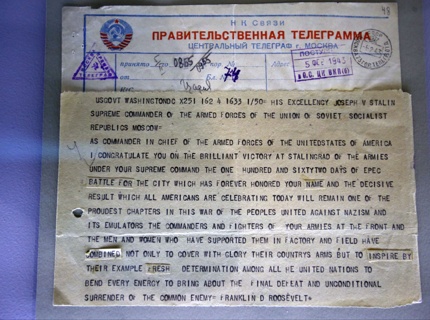 НК Связи
ПРАВИТЕЛЬСТВЕННАЯ ТЕЛЕГРАММА
ЦЕНТРАЛЬНЫЙ ТЕЛЕГРАФ г. МОСКВА
принято
5 ФЕВ 1943
USGOVT WASHINGTONDC X251 162 4 1633 1/50= HIS EXCELLENCY JOSEPH V STALIN
SUPREME COMMANDER OF THE ARMED FORCES OF THE UNION OF SOVIET SOCIALIST
REPUBLICS MOSCOW=
AS COMMANDER IN CHIEF OF THE ARMED FORCES OF THE UNITEDSTATES OF AMERICA
I CONGRATULATE YOU ON THE BRILLIANT VICTORY AT STALINGRAD OF THE ARMIES
UNDER YOUR SUPREME COMMAND THE ONE HUNDRED AND SIXTYTWO DAYS OF EPEC
BATTLE FOR THE CITY WHICH HAS FOREVER HONORED YOUR NAME AND THE DECISIVE
RESULT WHICH ALL AMERICANS ARE CELEBRATING TODAY WILL REMAIN ONE OF THE
PROUDEST CHAPTERS IN THIS WAR OF THE PEOPLES UNITED AGAINST NAZISM AND
ITS EMULATORS THE COMMANDERS AND FIGHTERS OF YOUR ARMIES AT THE FRONT AND
THE MEN AND WOMEN WHO HAVE SUPPORTED THEM IN FACTORY AND FIELD HAVE
COMBINED NOT ONLY TO COVER WITH GLORY THEIR COUNTRYS ARMS BUT TO INSPIRE BY
THEIR EXAMPLE FRESH DETERMINATION AMONG ALL HE UNITED NATIONS TO
BEND EVERY ENERGY TO BRING ABOUT THE FINAL DEFEAT AND UNCONDITIONAL
SURRENDER OF THE COMMON ENEMY= FRANKLIN D ROOSEVELT=